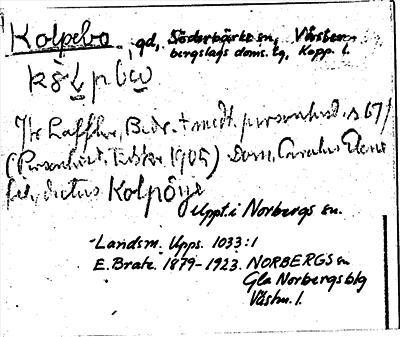 Kolpebo, gd, Söderbärke sn, Västerbergslags doms. tg, Kopp. l.
Jfr Läffler, Bidr. t. medt. personhist. s 67
(Personhist. Tidskr. 1905) Dom. Carolus
dictus Kolpöyä
Uppt. i Norbergs sn.
Landsm. Upps. 1033:1
E. Brate. 1879-1923. NORBERGS sn
Gla Norbergs blg
Västm. l.